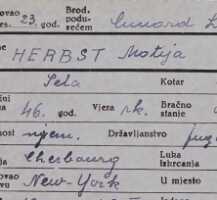 ovao
es. 23. god. Brod. podu-
zećem Cunard L
me HERBST Matija
Sela Kotar
ini
a 46. god. Vjera rk. Bračno
stanje
nost njem. Državljanstvo jug
Cherbourg Luka
izkrcanja
ovao New-York U mjesto